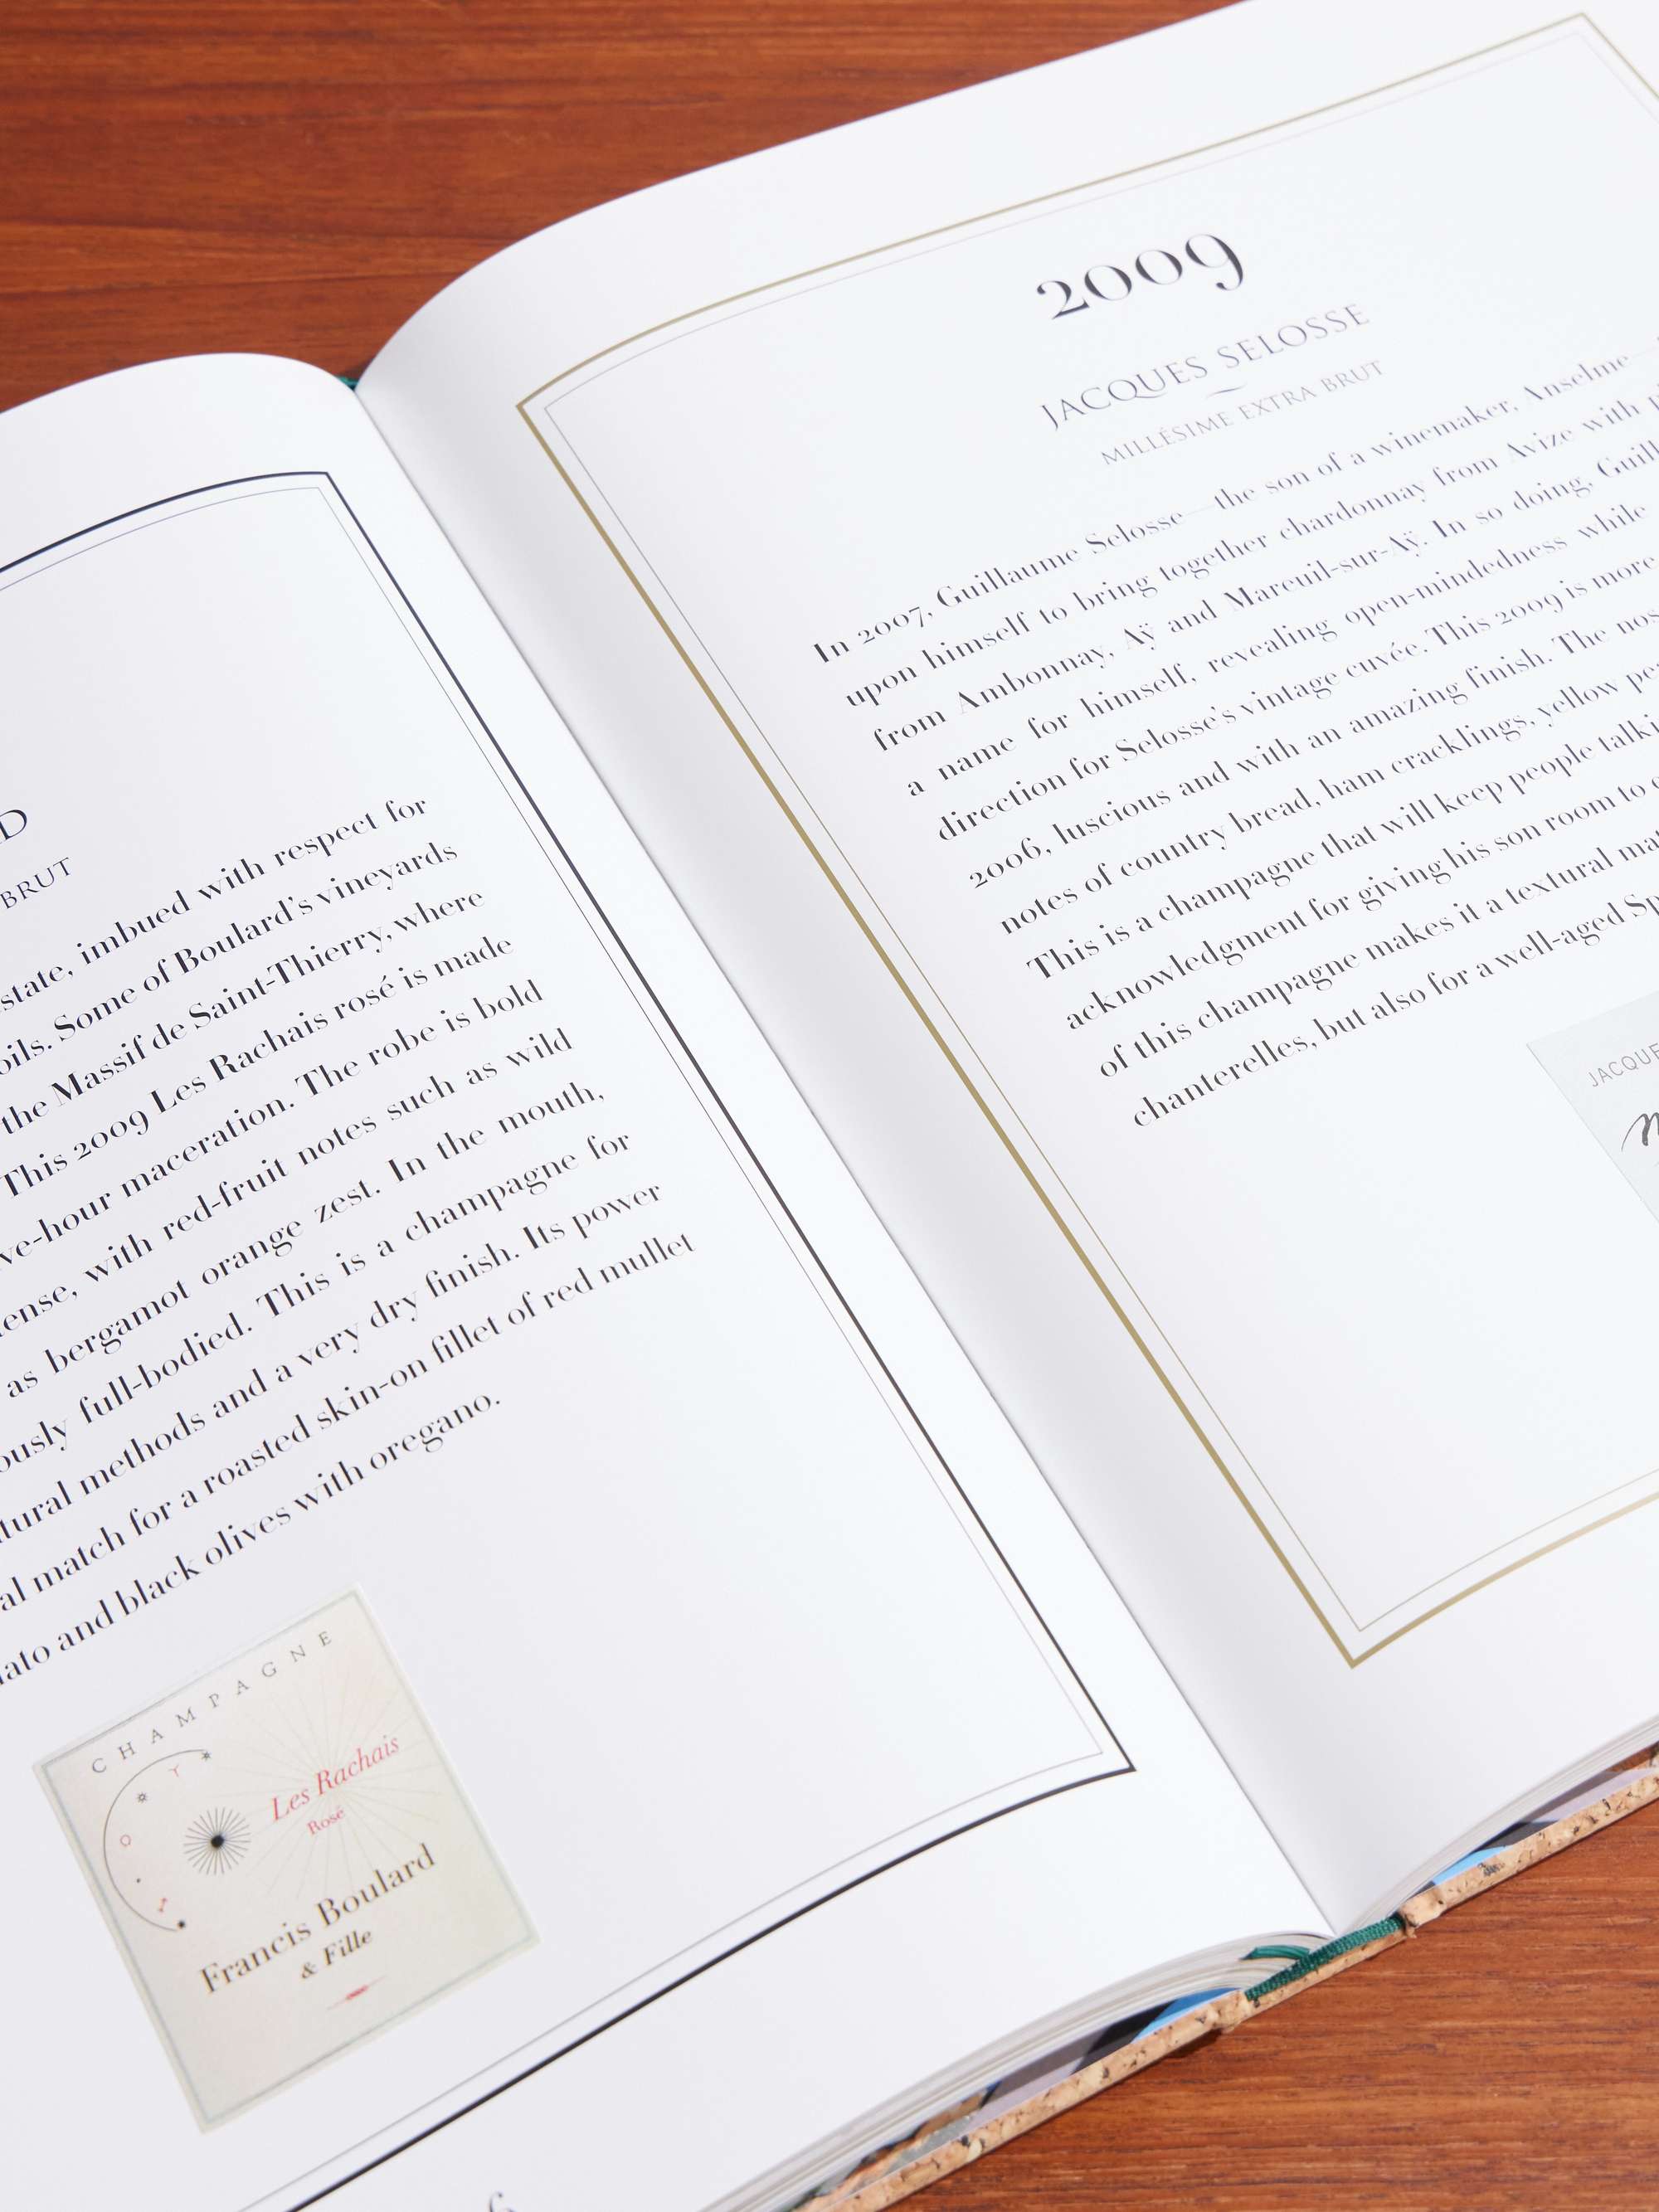 BRUT
imbued with respect for
Some of Boulard's vineyards
the Massif de Saint-Thierry, where
This 2009 Les Rachais rosé is made
maceration. The robe is bold
with red-fruit notes such as wild
as bergamot orange zest. In the mouth,
full-bodied. This is a champagne for
methods and a very dry finish. Its power
match for a roasted skin-on fillet of red mullet
and black olives with oregano.
CHAMPAGNE
Les Rachais
Rosé
Francis Boulard
& Fille
2009
JACQUES SELOSSE
MILLÉSIME EXTRA BRUT
In 2007, Guillaume Selosse—the son of a winemaker, Anselme—
upon himself to bring together chardonnay from Avize with
from Ambonnay, Aÿ and Mareuil-sur-Aÿ. In so doing,
a name for himself, revealing open-mindedness while
direction for Selosse's vintage cuvée. This 2009 is more
2006, luscious and with an amazing finish. The
notes of country bread, ham cracklings, yellow
This is a champagne that will keep people
acknowledgment for giving his son room to
of this champagne makes it a textural
chanterelles, but also for a well-aged